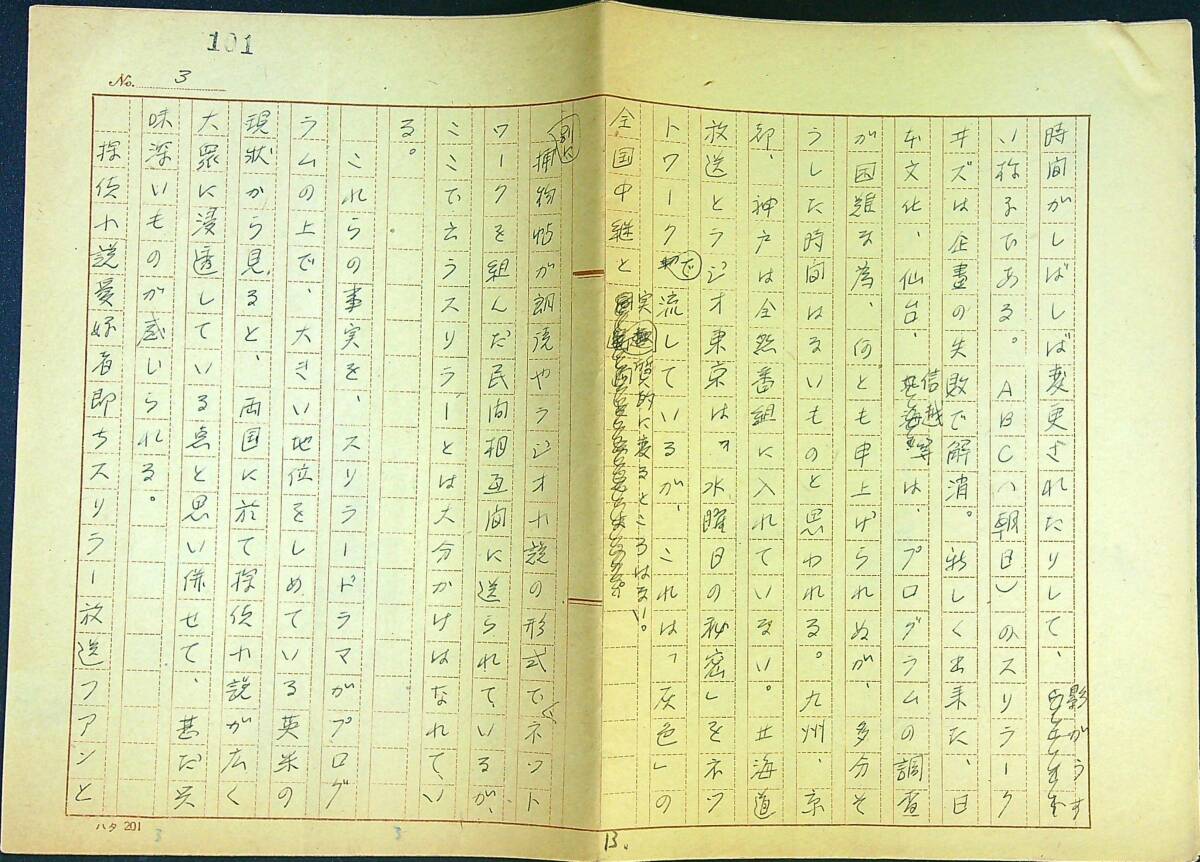 101
No. 3
時間がしばしば変更されたりして、影がうす
い様子である。ABC(朝日)のスリラーク
ヰズは企畫の失敗で解消。新しく出来た、日
本文化、仙台、信越等は、プログラムの調査
が困難な為、何とも申上げられぬが、多分そ
うした時間はないものと思われる。九州、京
都、神戸は全然番組に入れていない。北海道
放送とラジオ東京は『水曜日の秘密』をネッ
トワークで流しているが、これは「灰色」の
全国中継と実質的に変るところはない。
別に捕物帖が朗読やラジオ小説の形式で、ネット
ワークを組んだ民間相互間に送られているが、
ここで云うスリラーとは大分かけはなれてい
る。
これらの事実を、スリラードラマがプログ
ラムの上で、大きい地位をしめている英米の
現状から見ると、両国に於て探偵小説が広く
大衆に浸透している点と思い併せて、甚だ興
味深いものが感じられる。
探偵小説愛好者即ちスリラー放送フアンと
ハタ 201
3
3
13.